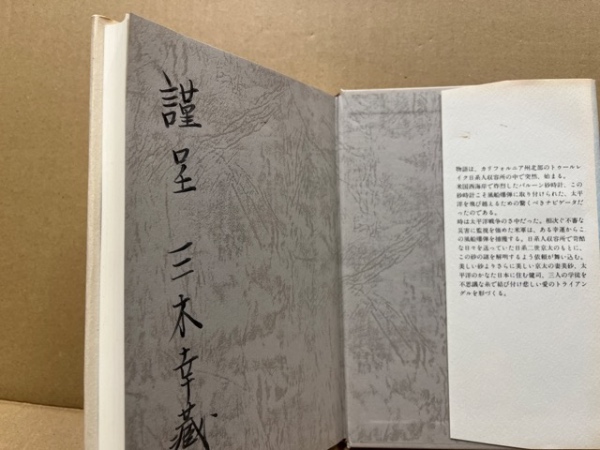 謹呈 三木幸蔵
物語は、カリフォルニア州北部のトゥールレ
イク日系人収容所の中で突然、始まる。
米国西海岸で炸裂したバルーン砂時計、この
砂時計こそ風船爆弾に取り付けられた、太平
洋を飛び越えるための驚くべきナビゲータだ
ったのである。
時は太平洋戦争のさ中だった。相次ぐ不審な
災害に監視を強めた米軍は、ある幸運からこ
の風船爆弾を捕獲する。日系人収容所で苛酷
な日々を送っていた日系二世京太のもとに、
この砂の謎を解明するよう依頼が舞い込む。
美しい砂よりさらに美しい京太の妻美砂、太
平洋のかなた日本に住む健司、三人の学徒を
不思議な糸で結び付け悲しい愛のトライアン
グルを形づくる。